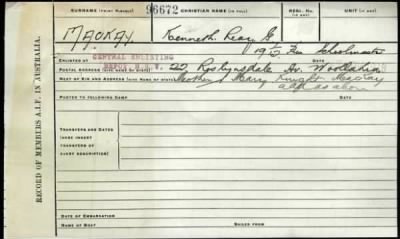 SURNAME (PRINT FIRMLY) 96672 CHRISTIAN NAME (IN FULL) UNIT AND RANK
MACKAY Kenneth Reay G
19 5/12 Schoolmaster
ENLISTED AT CENTRAL ENLISTING
POSTAL ADDRESS (WITH NAME OF STATE) DEPOT N.S.W. 22 Roslyndale Av. Woollahra
NEXT OF KIN AND ADDRESS (WITH NAME OF STATE) Mother Mary Knight Mackay
POSTED TO FOLLOWING CAMP add as above
TRANSFERS AND DATES
(ALSO INSERT
TRANSFERS OF
EVERY DESCRIPTION)
DATE OF EMBARKATION
NAME OF BOAT SAILED FROM
RECORD OF MEMBERS A.I.F. IN AUSTRALIA.